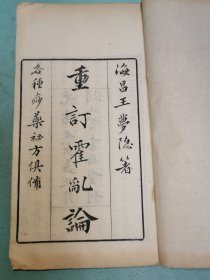 海昌王夢隐著
重訂霍亂論
各種痧藥秘方俱備